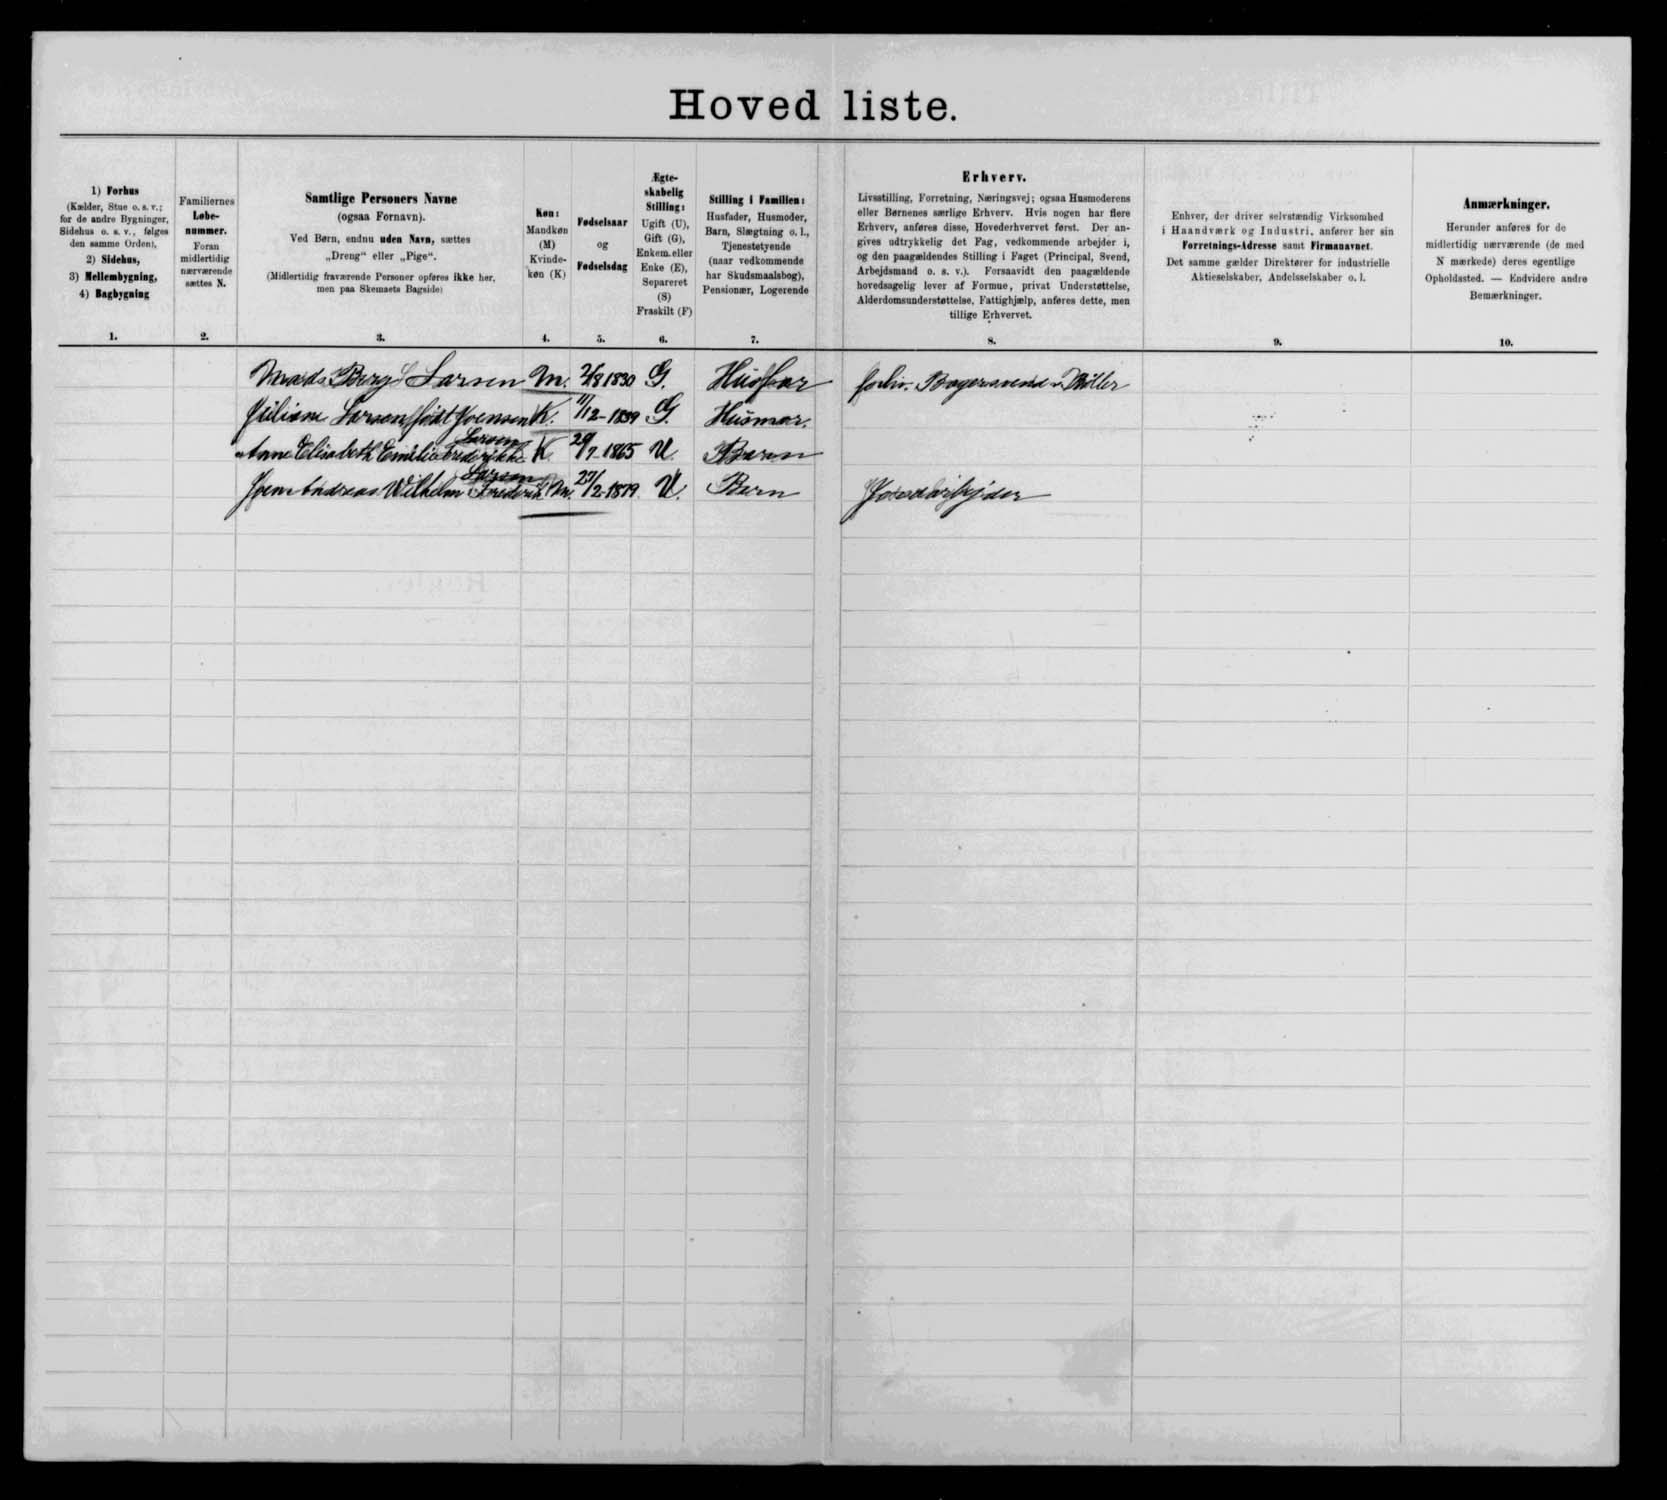 Hoved liste.
1) Forhus
(Kælder, Stue o. s. v.;
for de andre Bygninger,
Sidehus o. s. v., følges
den samme Orden),
2) Sidehus,
3) Mellembygning,
4) Bagbygning
1.
Familiernes
Løbe-
nummer.
Foran
midlertidig
nærværende
sættes N.
2.
Samtlige Personers Navne
(ogsaa Fornavn).
Ved Børn, endnu uden Navn, sættes
„Dreng“ eller „Pige“.
(Midlertidig fraværende Personer opføres ikke her,
men paa Skemaets Bagside)
3.
Køn:
Mandkøn
(M)
Kvinde-
køn (K)
4.
Fødselsaar
og
Fødselsdag
5.
Ægte-
skabelig
Stilling:
Ugift (U),
Gift (G),
Enkem. eller
Enke (E),
Separeret
(S)
Fraskilt (F)
6.
Stilling i Familien:
Husfader, Husmoder,
Barn, Slægtning o. l.,
Tjenestetyende
(naar vedkommende
har Skudsmaalsbog),
Pensionær, Logerende
7.
Erhverv.
Livsstilling, Forretning, Næringsvej; ogsaa Husmoderens
eller Børnenes særlige Erhverv. Hvis nogen har flere
Erhverv, anføres disse, Hovederhvervet først. Der an-
gives udtrykkelig det Fag, vedkommende arbejder i,
og den paagældendes Stilling i Faget (Principal, Svend,
Arbejdsmand o. s. v.). Forsaavidt den paagældende
hovedsagelig lever af Formue, privat Understøttelse,
Alderdomsunderstøttelse, Fattighjælp, anføres dette, men
tillige Erhvervet.
8.
Enhver, der driver selvstændig Virksomhed
i Haandværk og Industri, anfører her sin
Forretnings-Adresse samt Firmanavnet.
Det samme gælder Direktører for industrielle
Aktieselskaber, Andelsselskaber o. l.
9.
Anmærkninger.
Herunder anføres for de
midlertidig nærværende (de med
N mærkede) deres egentlige
Opholdssted. — Endvidere andre
Bemærkninger.
10.
Mads Berg Larsen M. 2/8 1830 G. Husfar Bagersvend Møller
Juliane Larsen født Joensen K. 11/12-1839 G. Husmor.
Larsen
Anne Elisabeth Emilie Frederikke K 29/7-1865 U. Barn
Larsen
Jens Andreas Wilhelm Frederik M. 27/2-1879 U. Barn Jordarbejder